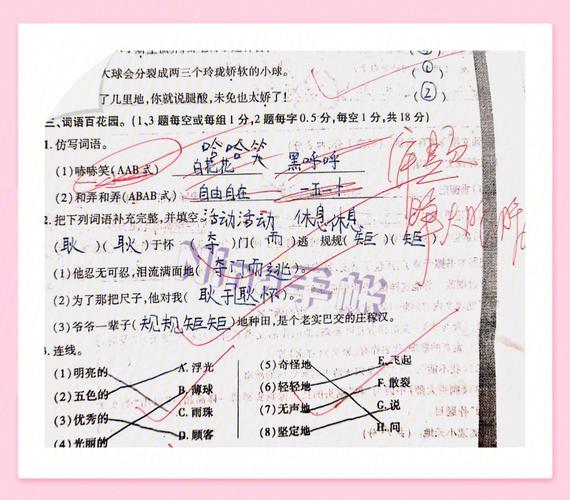 大球会分裂成两三个玲珑娇软的小球。 (①)
了几里地,你就说腿酸,未免也太娇了! (②)
三、词语百花园。(1、3题每空或每组1分,2题每字0.5分,每空1分,共18分)
1. 仿写词语。
哈哈笑
(1)嘻嘻笑(AAB式) 白花花 黑呼呼
(2)和弄和弄(ABAB式) 自由自在 一五一十
活动活动 休息休息
2. 把下列词语补充完整,并填空。
(耿)(耿)于怀 (夺)门(而)逃 规规(矩)(矩)
(1)他忍无可忍,泪流满面地(夺门而逃)。
(2)为了那把尺子,他对我(耿于耿怀)。
(3)爷爷一辈子(规规矩矩)地种田,是个老实巴交的庄稼汉。
3. 连线。
(1)明亮的 A. 浮光 (5)奇怪地 E. 飞起
(2)五色的 B. 薄球 (6)轻轻地 F. 散裂
(3)优秀的 C. 雨珠 (7)无声地 G. 说
(4)光丽的 D. 顾客 (8)坚定地 H. 问